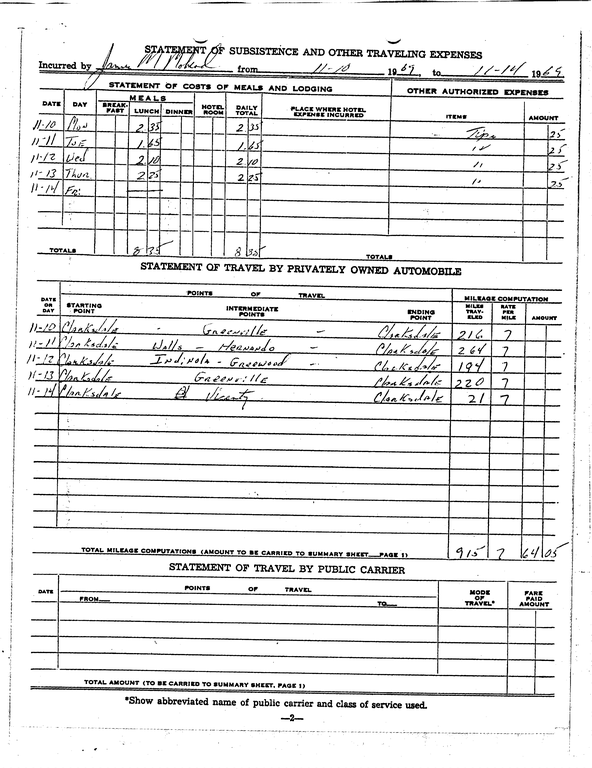 STATEMENT OF SUBSISTENCE AND OTHER TRAVELING EXPENSES
Incurred by James from 11-10 1969, to 11-14 1969
STATEMENT OF COSTS OF MEALS AND LODGING OTHER AUTHORIZED EXPENSES
MEALS
DATE DAY BREAK-FAST LUNCH DINNER HOTEL ROOM DAILY TOTAL PLACE WHERE HOTEL EXPENSE INCURRED ITEMS AMOUNT
11-10 Mon 2 35 2 35 Tips 25
11-11 Tue 1.65 1.65 " 25
11-12 Wed 2 10 2 10 " 25
11-13 Thur 2 25 2 25 " 25
11-14 Fri
TOTALS 8 35 8 35 TOTALS
STATEMENT OF TRAVEL BY PRIVATELY OWNED AUTOMOBILE
POINTS OF TRAVEL MILEAGE COMPUTATION
DATE OR DAY STARTING POINT INTERMEDIATE POINTS ENDING POINT MILES TRAV-ELED RATE PER MILE AMOUNT
11-10 Clarksdale - Greenville - Clarksdale 216 7
11-11 Clarksdale Walls - Hernando Clarksdale 264 7
11-12 Clarksdale Indinola - Greenwood - Clarksdale 194 7
11-13 Clarksdale Greenville Clarksdale 220 7
11-14 Clarksdale Vicenty Clarksdale 21 7
TOTAL MILEAGE COMPUTATIONS (AMOUNT TO BE CARRIED TO SUMMARY SHEET PAGE 1) 915 7 64 05
STATEMENT OF TRAVEL BY PUBLIC CARRIER
DATE POINTS OF TRAVEL MODE OF TRAVEL* FARE PAID AMOUNT
FROM TO
TOTAL AMOUNT (TO BE CARRIED TO SUMMARY SHEET, PAGE 1)
*Show abbreviated name of public carrier and class of service used.
—2—